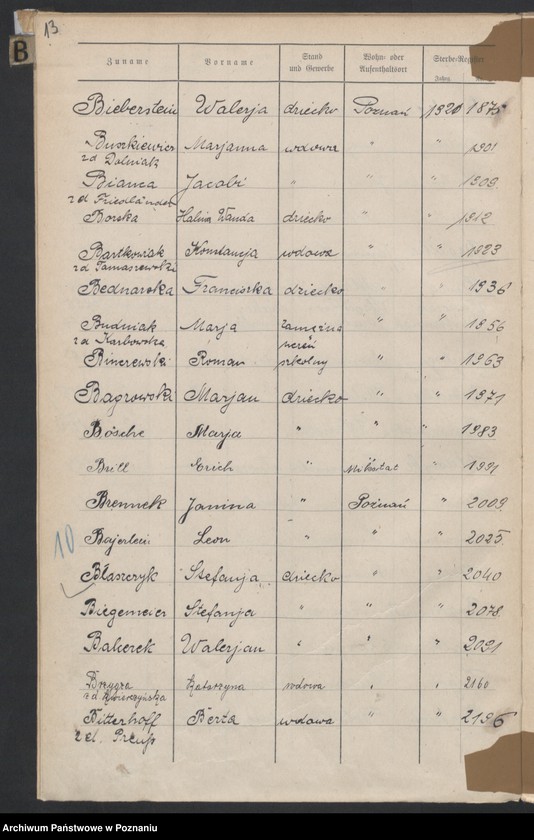 13
B
Zuname Vorname Stand und Gewerbe Wohn- oder Aufenthaltsort Sterbe-Register
Jahrg.
Bieberstein Walerja dziecko Poznań 1920 1875
Buszkiewicz Marjanna wdowa " " 1901
zd Dolniak
Bianca Jacobi " " " 1909
zd Friedländer
Borska Halina Wanda dziecko " " 1912
Bartkowiak Konstancja wdowa " " 1923
zd Tomaszewski
Bednarska Franciszka dziecko " " 1936
Budniak Marja zamężna " " 1956
zd Karbowska
Binczewski Roman uczeń szkolny " " 1963
Bagrowski Marjan dziecko " " 1971
Bösche Marja " " " 1983
Brill Erich " Mikstat " 1991
Brennek Janina " Poznań " 2009
10
Bajerlein Leon " " " 2025
Błaszczyk Stefanja dziecko " " 2040
Biegemeier Stefanja " " " 2078
Balcerek Walerjan " " " 2091
Bzygza Katarzyna wdowa " " 2160
Bitterhoff Berta wdowa " " 2196
z d. Preuß
Archiwum Państwowe w Poznaniu